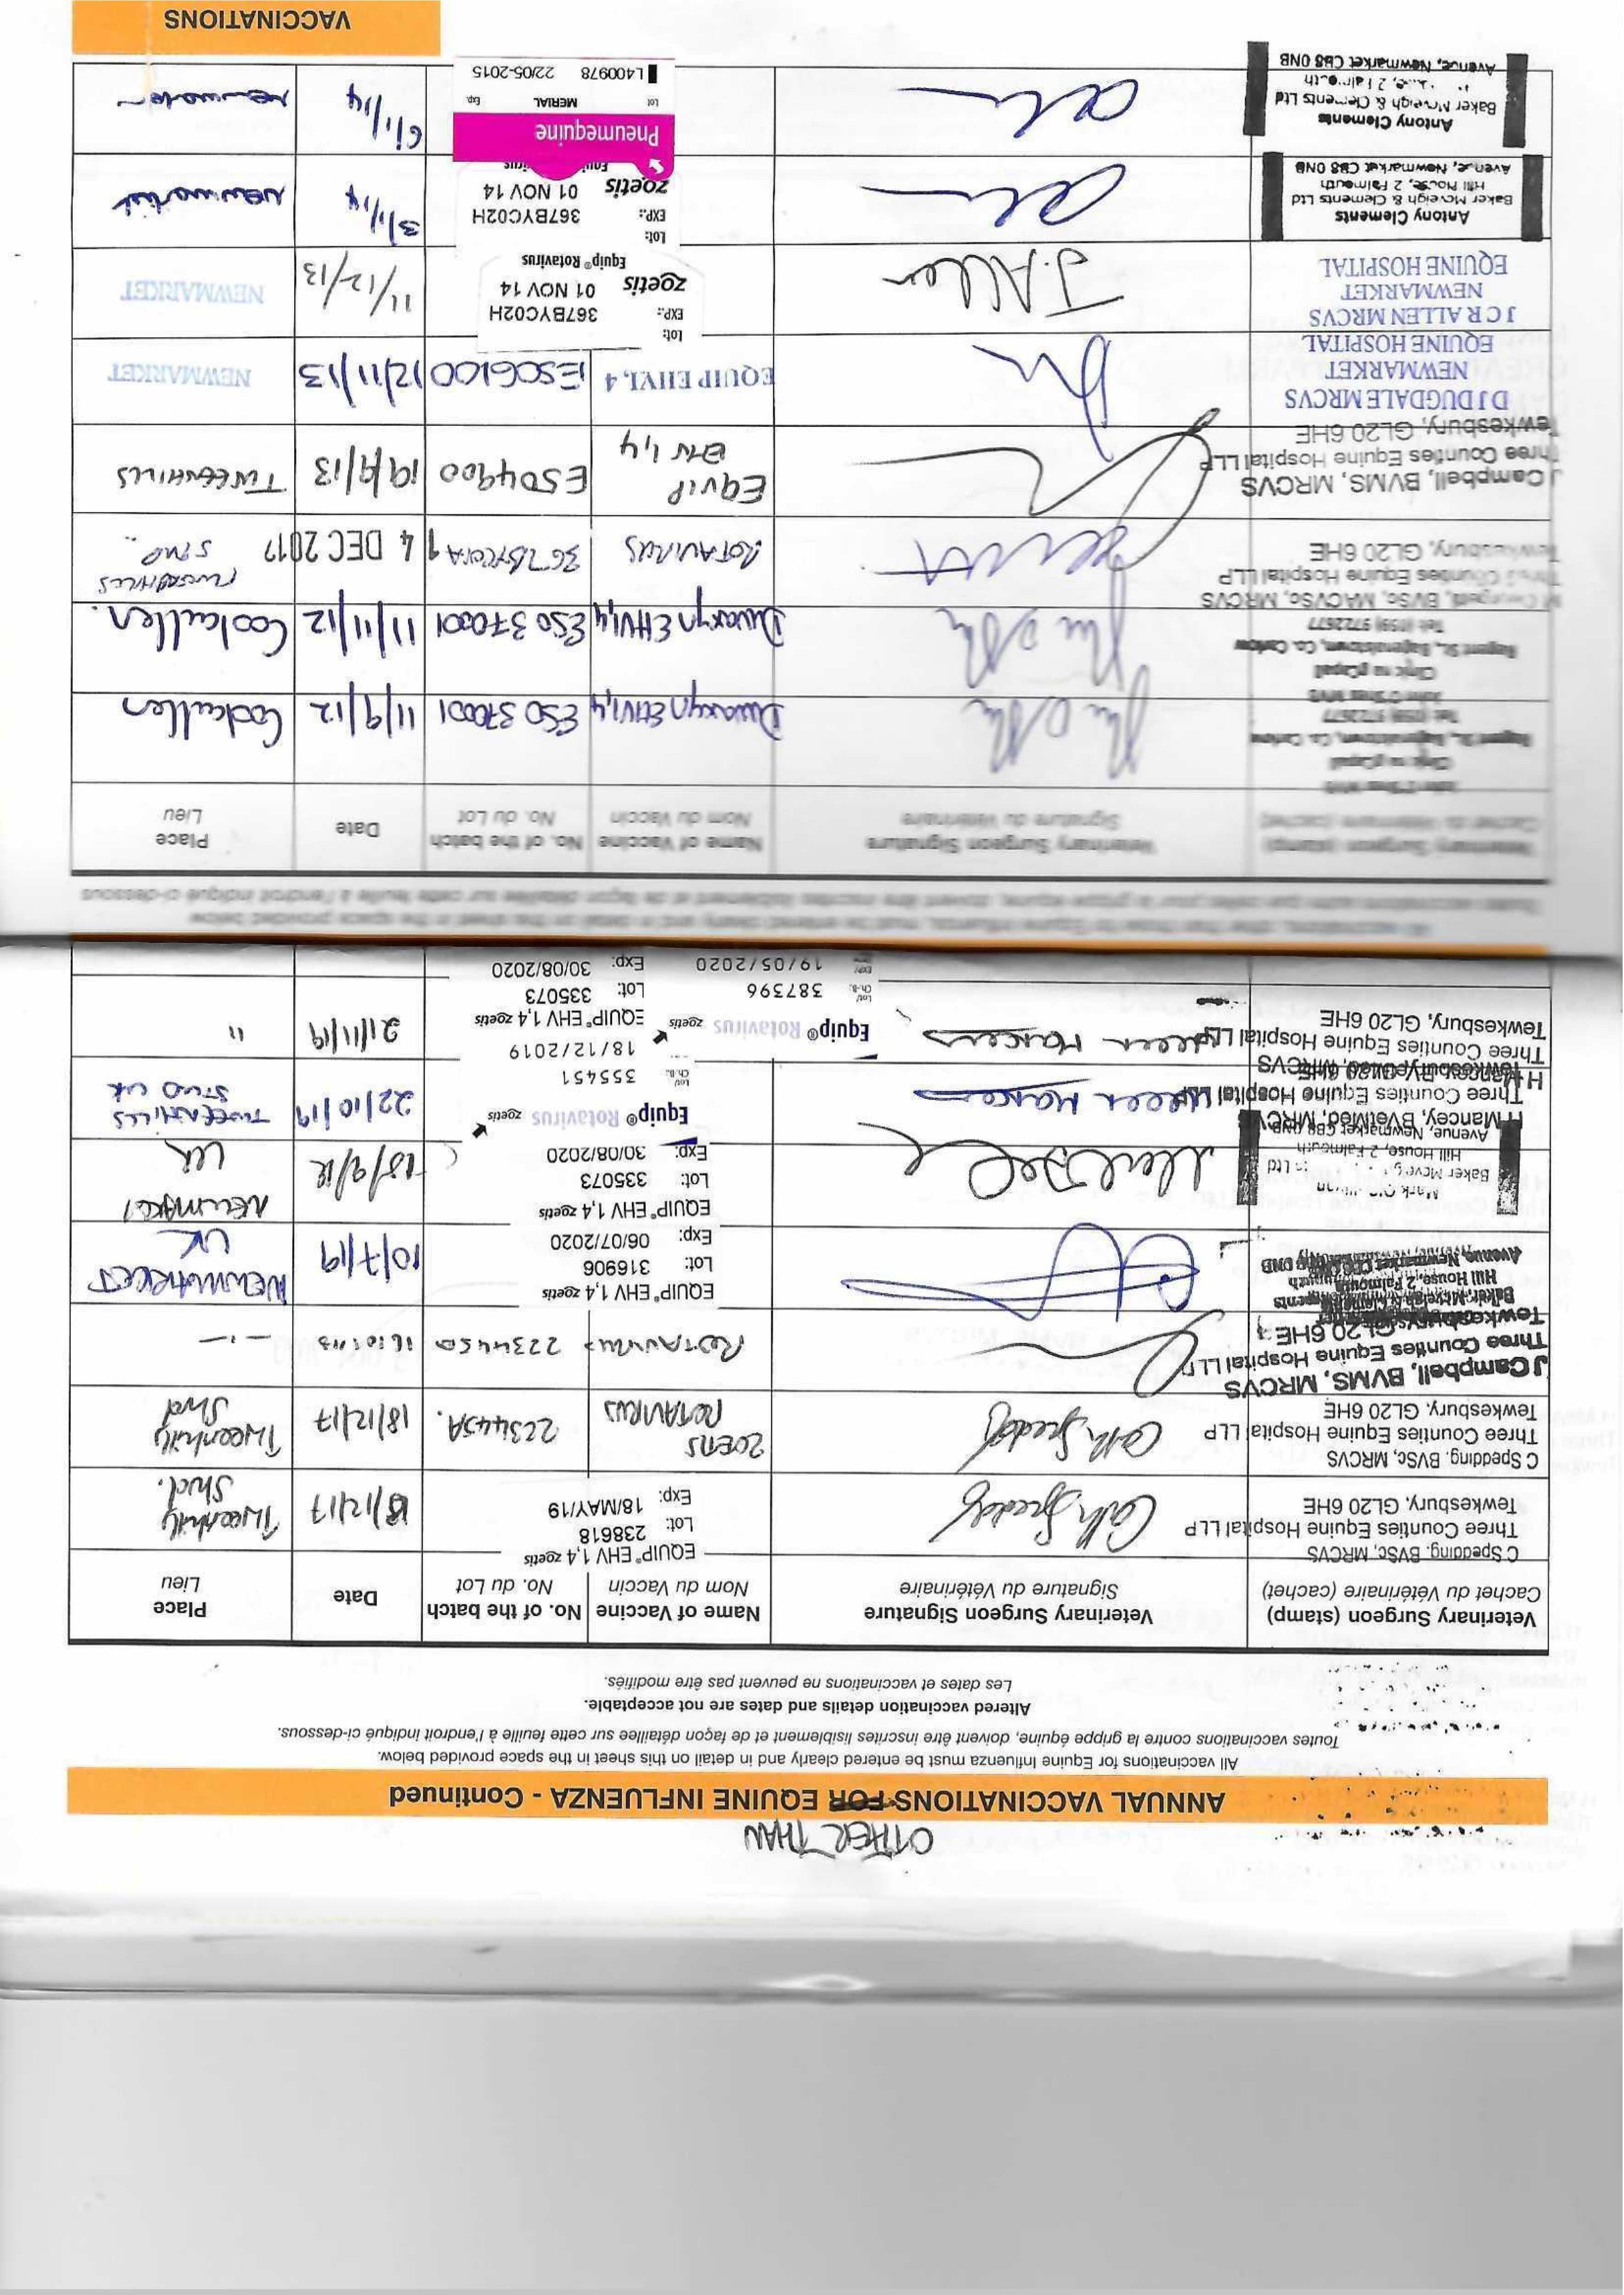 OTHER THAN
ANNUAL VACCINATIONS FOR EQUINE INFLUENZA - Continued
All vaccinations for Equine Influenza must be entered clearly and in detail on this sheet in the space provided below.
Toutes vaccinations contre la grippe équine, doivent être inscrites lisiblement et de façon détaillée sur cette feuille à l'endroit indiqué ci-dessous.
Altered vaccination details and dates are not acceptable.
Les dates et vaccinations ne peuvent pas être modifiés.
Veterinary Surgeon (stamp)
Cachet du Vétérinaire (cachet)
Veterinary Surgeon Signature
Signature du Vétérinaire
Name of Vaccine
Nom du Vaccin
No. of the batch
No. du Lot
Date
Place
Lieu
C Spedding. BVSc, MRCVS
Three Counties Equine Hospital LLP
Tewkesbury, GL20 6HE
EQUIP® EHV 1,4 zoetis
Lot: 238618
Exp: 18/MAY/19
18/12/17
Tweenhills
Stud.
C Spedding. BVSc, MRCVS
Three Counties Equine Hospital LLP
Tewkesbury, GL20 6HE
ZOETIS
ROTAVIRUS
223445A.
18/12/17
Tweenhills
Stud
J Campbell, BVMS, MRCVS
Three Counties Equine Hospital LLP
Tewkesbury, GL20 6HE
ROTAVIRUS
Hill House, 2 Falmouth
EQUIP® EHV 1,4 zoetis
Lot: 316906
Exp: 06/07/2020
10/7/19
NEWMARKET
UK
Baker Mcveigh
Hill House, 2 Falmouth
Avenue, Newmarket CB8 0NB
EQUIP® EHV 1,4 zoetis
Lot: 335073
Exp: 30/08/2020
NEWMARKET
UK
H Mancey, BVetMed, MRCVS
Three Counties Equine Hospital LLP
Equip® Rotavirus zoetis
355451
18/12/2019
22/10/19
TWEENHILLS
STUD UK
H Mancey, BVetMed, MRCVS
Three Counties Equine Hospital LLP
Tewkesbury, GL20 6HE
Equip® Rotavirus zoetis
387396
19/05/2020
EQUIP® EHV 1,4 zoetis
Lot: 335073
Exp: 30/08/2020
21/11/19
"
All vaccinations, other than those for Equine Influenza, must be entered clearly and in detail on this sheet in the space provided below
Toutes vaccinations autre que celles pour la grippe equine, doivent être inscrites lisiblement et de façon détaillée sur cette feuille à l'endroit indiqué ci-dessous
Veterinary Surgeon (stamp)
Cachet du Vétérinaire (cachet)
Veterinary Surgeon Signature
Signature du Vétérinaire
Name of Vaccine
Nom du Vaccin
No. of the batch
No. du Lot
Date
Place
Lieu
Regent St., Bagenalstown, Co. Carlow
Tel: (059) 9722677
Duvaxyn EHV1,4
ESO 370001
11/9/12
Coolcullen
Regent St., Bagenalstown, Co. Carlow
Tel: (059) 9722677
Duvaxyn EHV1,4
ESO 370001
11/11/12
Coolcullen.
Three Counties Equine Hospital LLP
Tewkesbury, GL20 6HE
ROTAVIRUS
TWEENHILLS
STUD
J Campbell, BVMS, MRCVS
Three Counties Equine Hospital LLP
Tewkesbury, GL20 6HE
EQUIP
EHV 1,4
ES04900
19/9/13
TWEENHILLS
D J DUGDALE MRCVS
NEWMARKET
EQUINE HOSPITAL
EQUIP EHV1, 4
ES06100
12/11/13
NEWMARKET
J C R ALLEN MRCVS
NEWMARKET
EQUINE HOSPITAL
J. Allen
Lot: 367BYC02H
EXP.: 01 NOV 14
zoetis
Equip® Rotavirus
11/12/13
NEWMARKET
Antony Clements
Baker Mcveigh & Clements Ltd
Hill House, 2 Falmouth
Avenue, Newmarket CB8 0NB
Lot:
EXP.: 367BYC02H
zoetis 01 NOV 14
3/1/14
Newmarket
Antony Clements
Baker Mcveigh & Clements Ltd
Avenue, Newmarket CB8 0NB
Pneumequine
MERIAL
Lot Exp
L400978 22/05-2015
6/1/14
Newmarket
VACCINATIONS